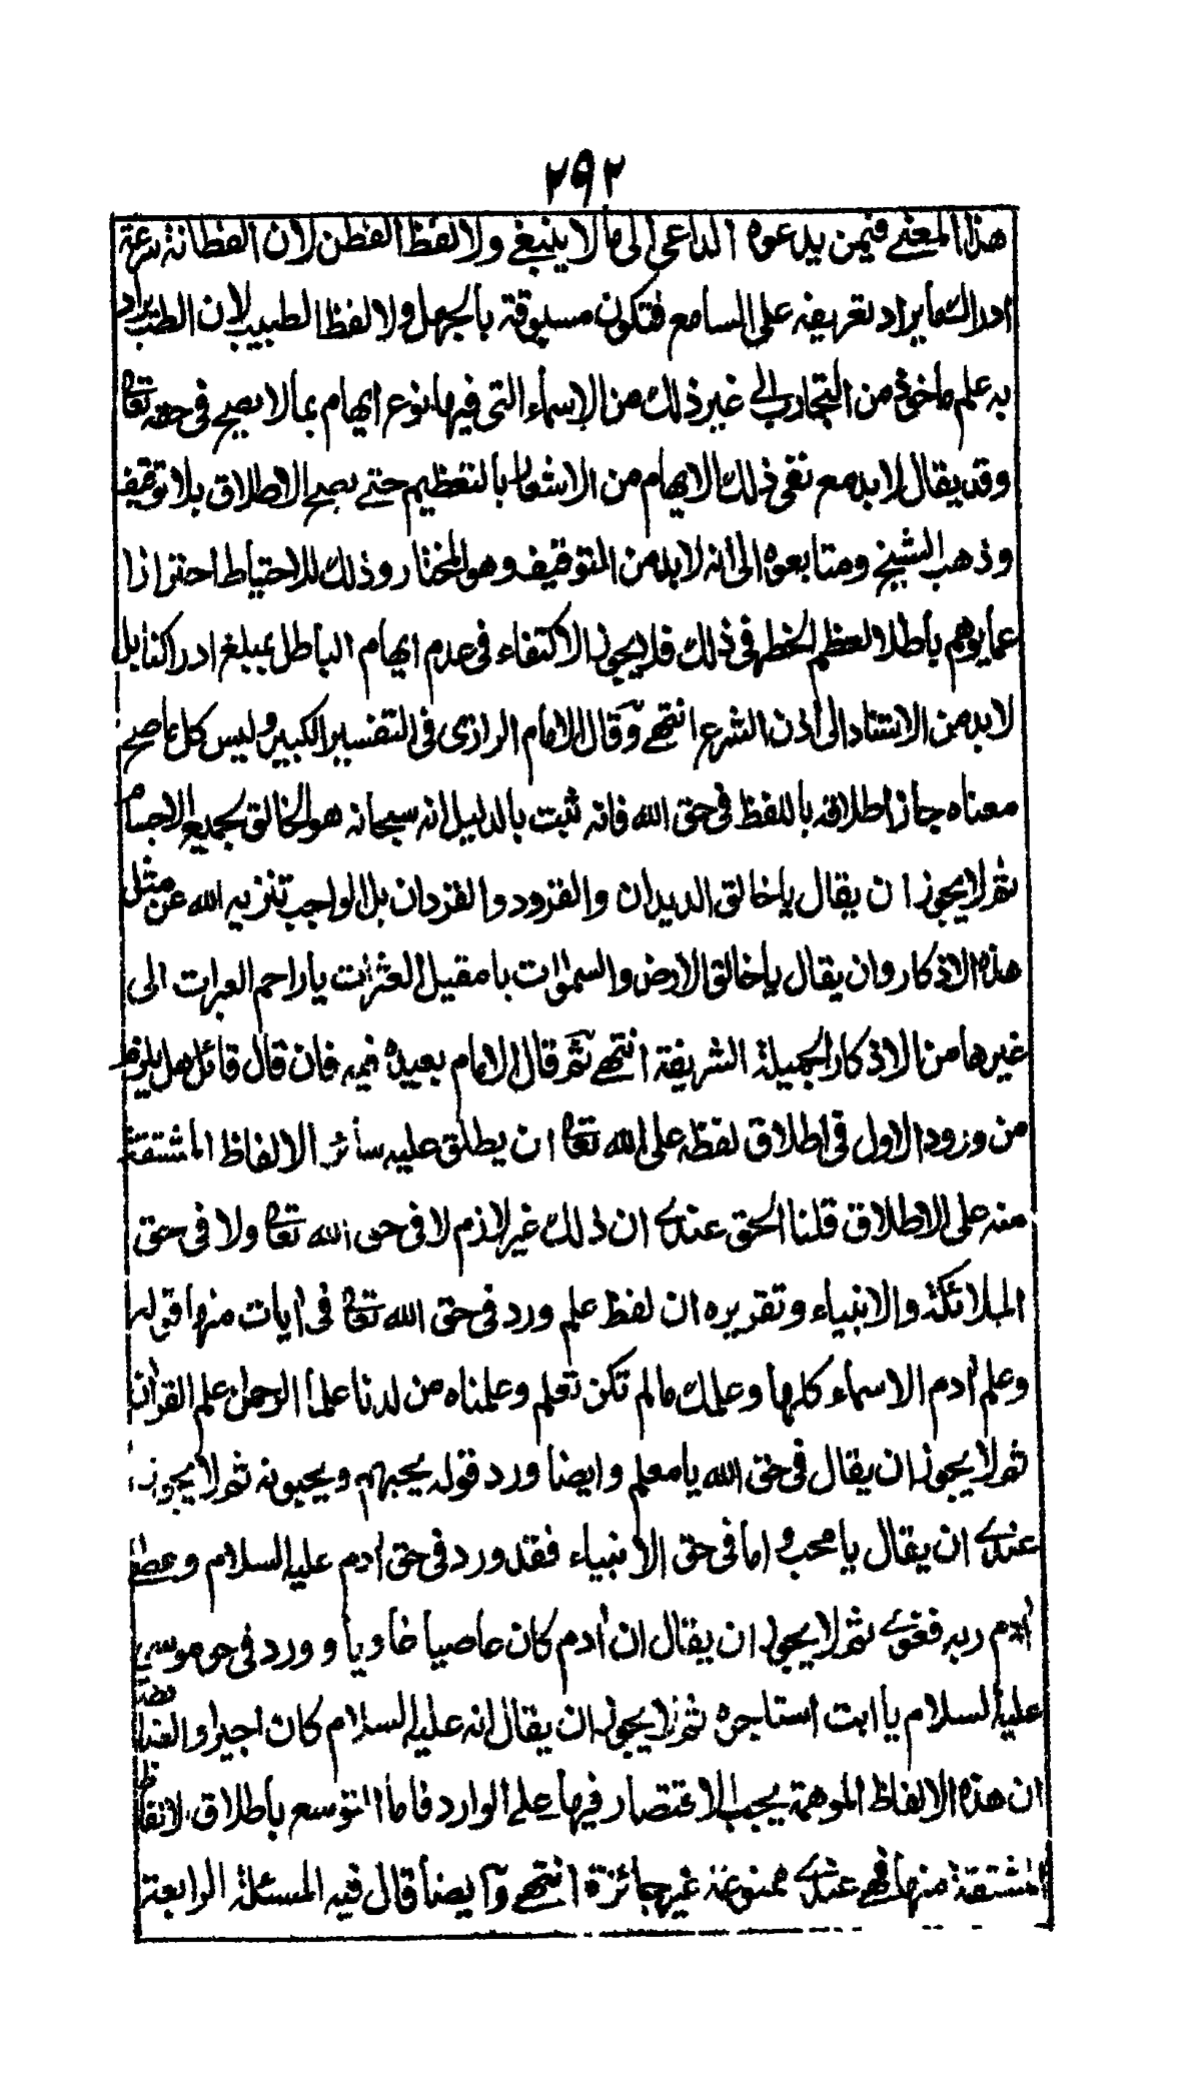 ٢٩٢
هذا المعنے فيمن يدعوه الداعی الی ما لا ينبغے ولا لفظ الفطن لان الفطانة سرعة
ادراك ما يراد تعريفه علی السامع فتكون مسبوقة بالجهل ولا لفظ الطبيب لان الطب يراد
به علم ماخوذ من التجارب الے غير ذلك من الاسماء التی فيها نوع ايهام بما لا يصح فی حقه تعالی
وقد يقال لا بد مع نفی ذلك الايهام من الاشعار بالتعظيم حتے يصح الاطلاق بلا توقيف
وذهب الشيخ ومتابعوه الی انه لا بد من التوقيف وهو المختار وذلك للاحتياط احترازا
عما يوهم باطلا لعظم الخطر فی ذلك فلا يجوز الاكتفاء فی عدم ايهام الباطل بمبلغ ادراكنا بل
لا بد من الاستناد الی اذن الشرع انتهے وقال الامام الرازی فی التفسير الكبير وليس كل ما صح
معناه جاز اطلاقه باللفظ فی حق الله فانه ثبت بالدليل انه سبحانه هو الخالق بجميع الاجسام
ثم لا يجوز ان يقال يا خالق الديدان والقرود والقردان بل الواجب تنزيه الله عن مثل
هذه الاذكار وان يقال يا خالق الارض والسموات يا مقيل العثرات يا راحم العبرات الی
غيرها من الاذكار الجميلة الشريفة انتهے ثم قال الامام بعيده فيه فان قال قائل هل يلزم
من ورود الاول فی اطلاق لفظه علی الله تعالی ان يطلق عليه سائر الالفاظ المشتقة
منه علی الاطلاق قلنا الحق عندی ان ذلك غير لازم لا فی حق الله تعالی ولا فی حق
الملائكة والانبياء وتقريره ان لفظ علم ورد فی حق الله تعالی فی ايات منها قوله
وعلم ادم الاسماء كلها وعلمك ما لم تكن تعلم وعلمناه من لدنا علما الرحمن علم القران
ثم لا يجوز ان يقال فی حق الله يا معلم وايضا ورد قوله يحبهم ويحبونه ثم لا يجوز
عندے ان يقال يا محب واما فی حق الانبياء فقد ورد فی حق ادم عليه السلام وعصی
ادم ربه فغوے ثم لا يجوز ان يقال ان ادم كان عاصيا غاويا وورد فی حق موسی
عليه السلام يا ابت استاجره ثم لا يجوز ان يقال انه عليه السلام كان اجيرا والضابط
ان هذه الالفاظ الموهمة يجب الاقتصار فيها علے الوارد فاما التوسع باطلاق الالفاظ
المشتقة منها فهے عندے ممنوعة غير جائزة انتهے وايضا قال فيه المسئلة الرابعة